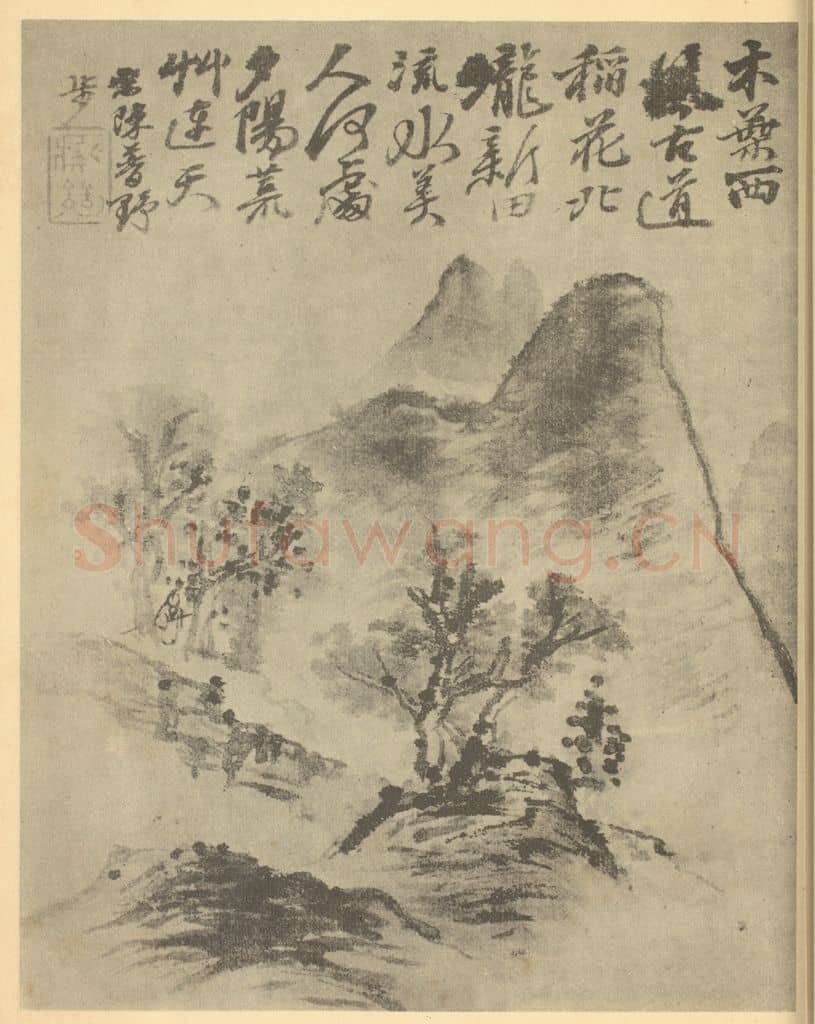 木葉西
風古道
稻花北
隴新田
流水美
人何處
夕陽荒
艸連天
步
Shufawang.CN